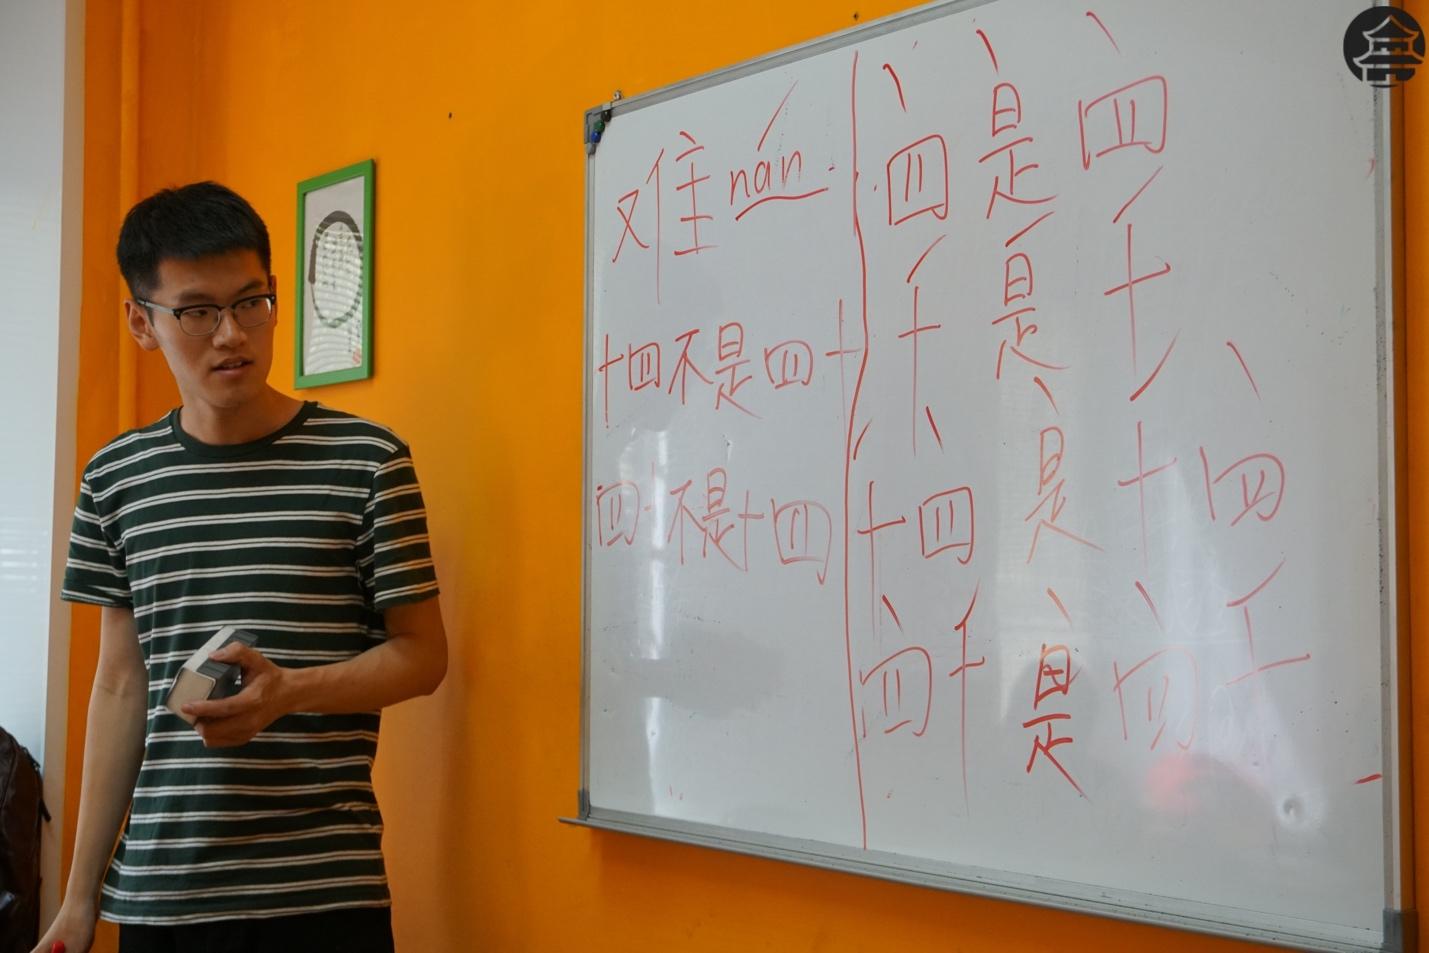 难 nán
十四不是四十
四十不是十四
四是四
十是十
十四是十四
四十是四十